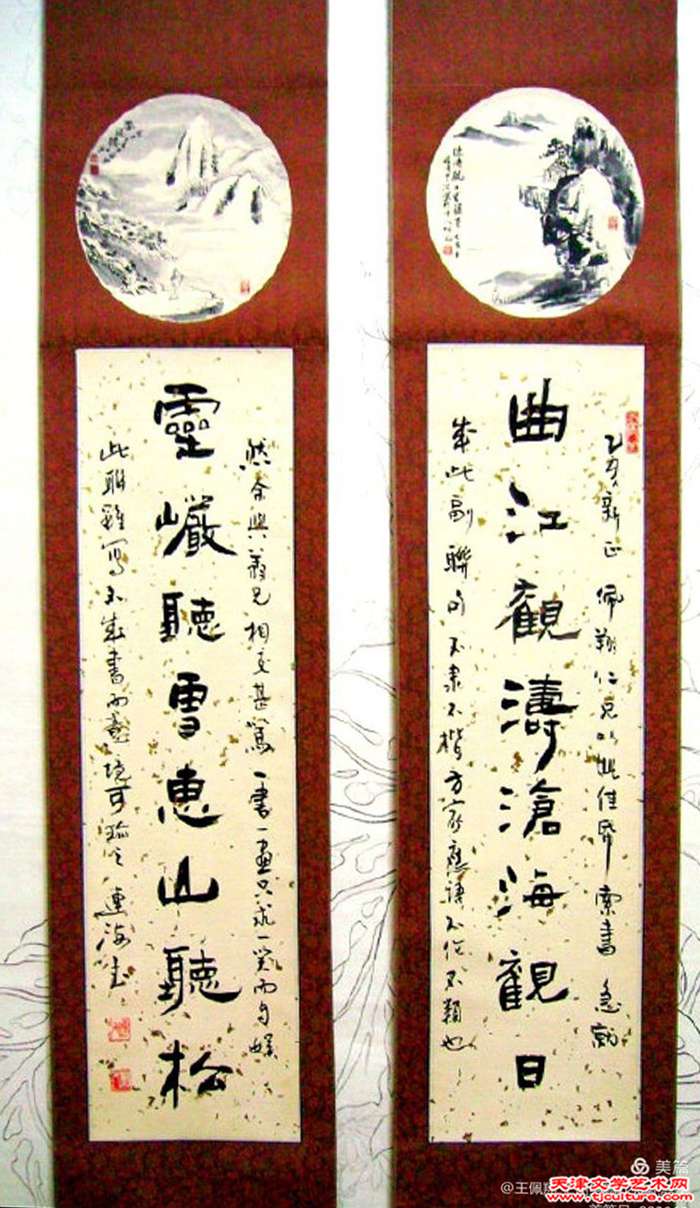 曲江觀濤滄海觀日
乙亥新正佩翔仁兄以此佳帋索書急就
成此副聯句不隶不楷方家應謂不伦不類也
靈巗聽雪惠山聽松
然余與義兄相交甚篤一書一畫只求一笑而
此聯雖写不成書而意境可瑜之連海
美篇
@王佩翔
天津文学艺术网
www.tjculture.com